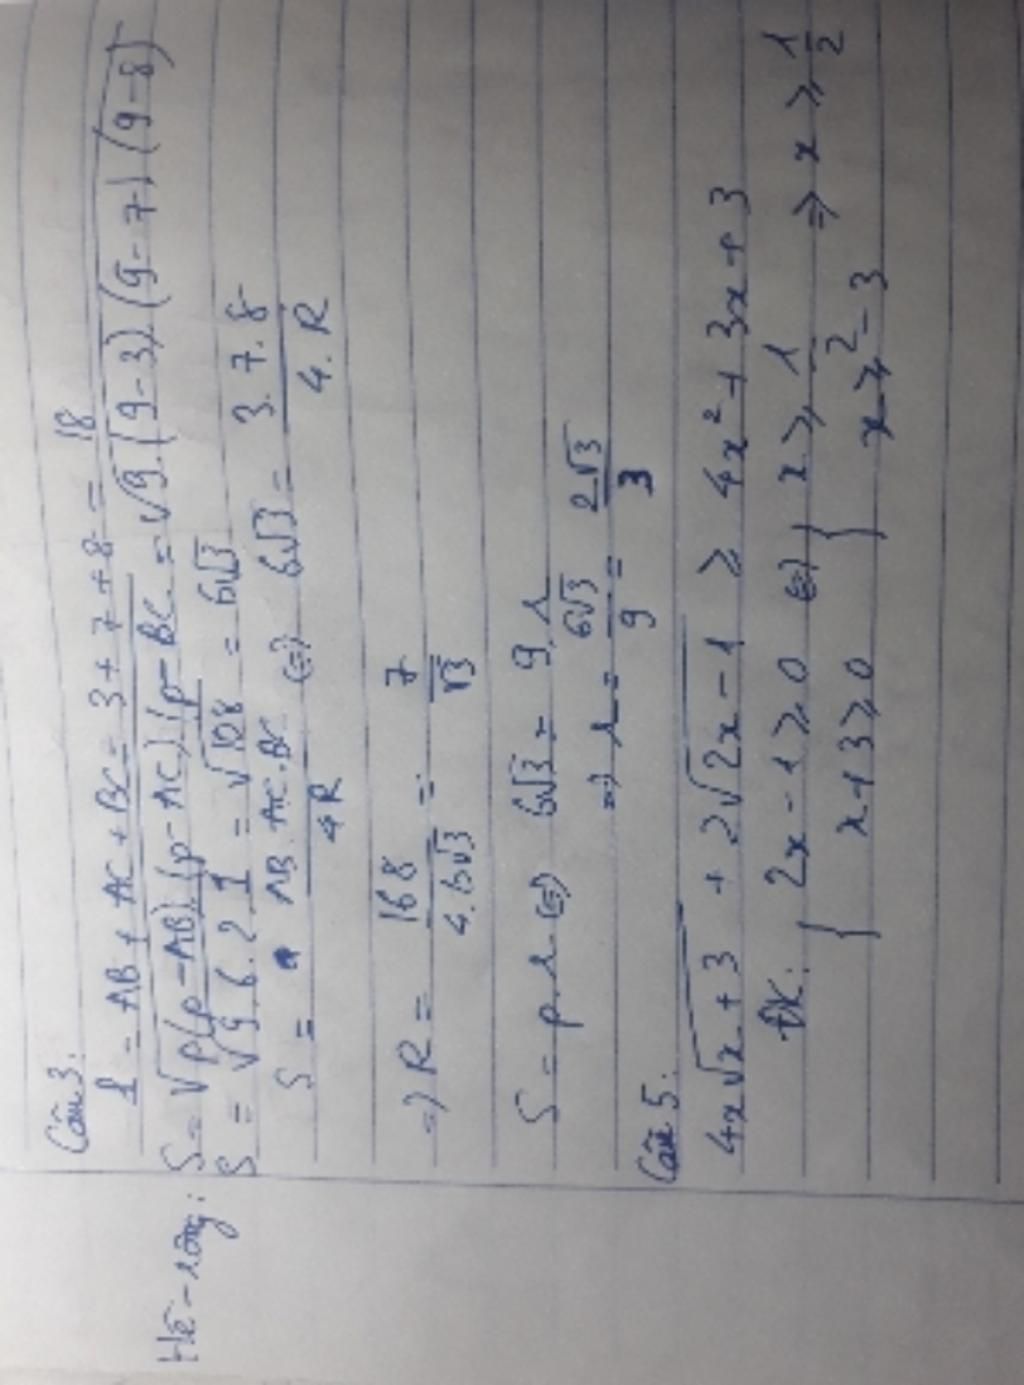 Câu 3:
1 = AB + AC + BC = 3 + 7 + 8 = 18
Hê-rông: S = √p(p-AB)(p-AC)(p-BC = √9.(9-3)(9-7)(9-8)
S = √9.6.2.1 = √108 = 6√3
S = AB.AC.BC/4R (=) 6√3 = 3.7.8/4.R
=> R = 168/4.6√3 = 7/√3
S = p.r (=) 6√3 = 9.r
=> r = 6√3/9 = 2√3/3
Câu 5:
4x√x+3 + 2√2x-1 ≥ 4x² + 3x + 3
ĐK: { 2x-1 ≥ 0 (=) { x ≥ 1/2 => x ≥ 1/2
x+3 ≥ 0 x ≥ -3